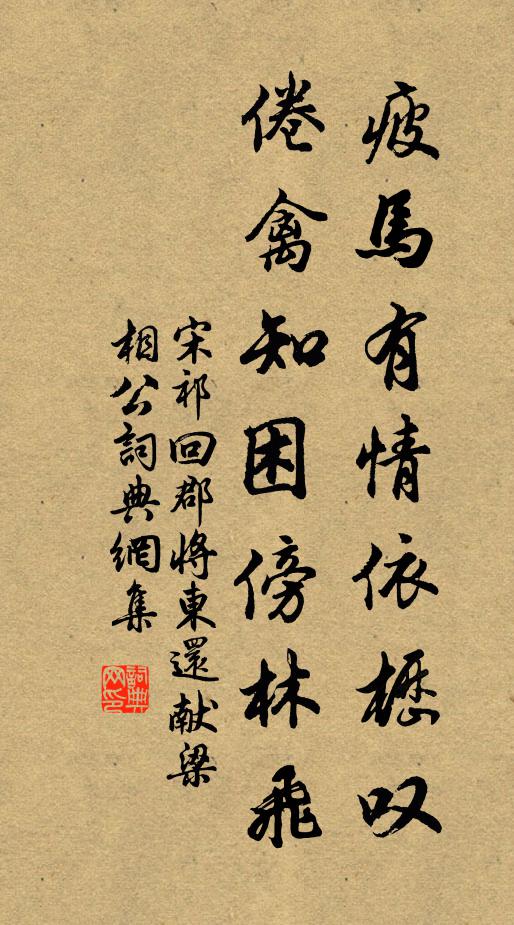 疲馬有情依櫪叹
倦禽知困傍林飛
宋祁回郡将東還献梁
相公詞典網集
詞典网印